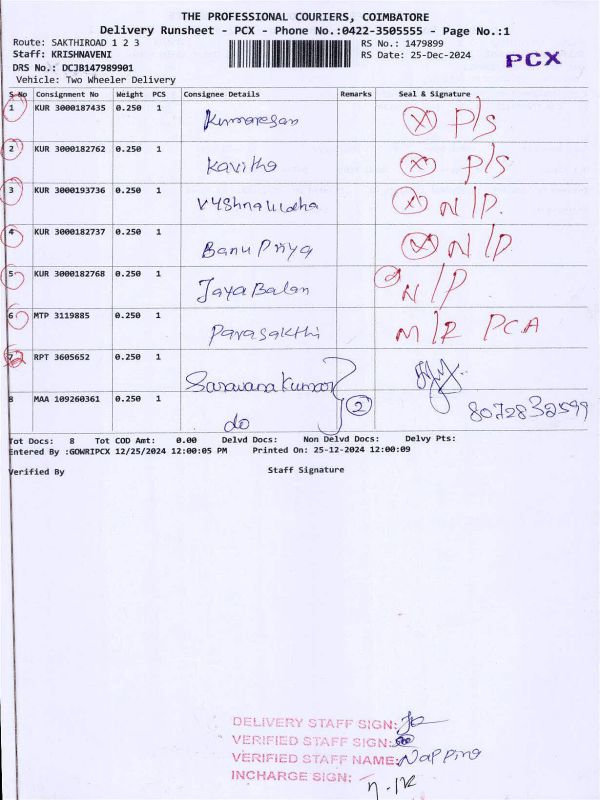 THE PROFESSIONAL COURIERS, COIMBATORE
Delivery Runsheet - PCX - Phone No.:0422-3505555 - Page No.:1
Route: SAKTHIROAD 1 2 3 RS No.: 1479899
Staff: KRISHNAVENI RS Date: 25-Dec-2024 PCX
DRS No.: DCJB147989901
Vehicle: Two Wheeler Delivery
S No Consignment No Weight PCS Consignee Details Remarks Seal & Signature
1 KUR 3000187435 0.250 1 Kumaresan X P/S
2 KUR 3000182762 0.250 1 Kavitha X P/S
3 KUR 3000193736 0.250 1 X N/P.
4 KUR 3000182737 0.250 1 Banu Priya X N/P
5 KUR 3000182768 0.250 1 JayaBalan N/P
6 MTP 3119885 0.250 1 Parasakthi M/R PCA
7 RPT 3605652 0.250 1 Saravana Kumar
8 MAA 109260361 0.250 1 do 2 8072832599
Tot Docs: 8 Tot COD Amt: 0.00 Delvd Docs: Non Delvd Docs: Delvy Pts:
Entered By :GOWRIPCX 12/25/2024 12:00:05 PM Printed On: 25-12-2024 12:00:09
Verified By Staff Signature
DELIVERY STAFF SIGN:
VERIFIED STAFF SIGN:
VERIFIED STAFF NAME:
INCHARGE SIGN: